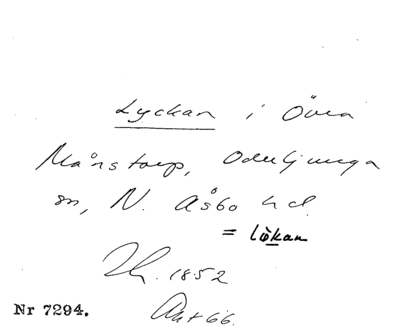 Lyckan i Övra
Månstorp, Oderljunga
sn, N. Åsbo hd.
= lökan
1852
Nr 7294.